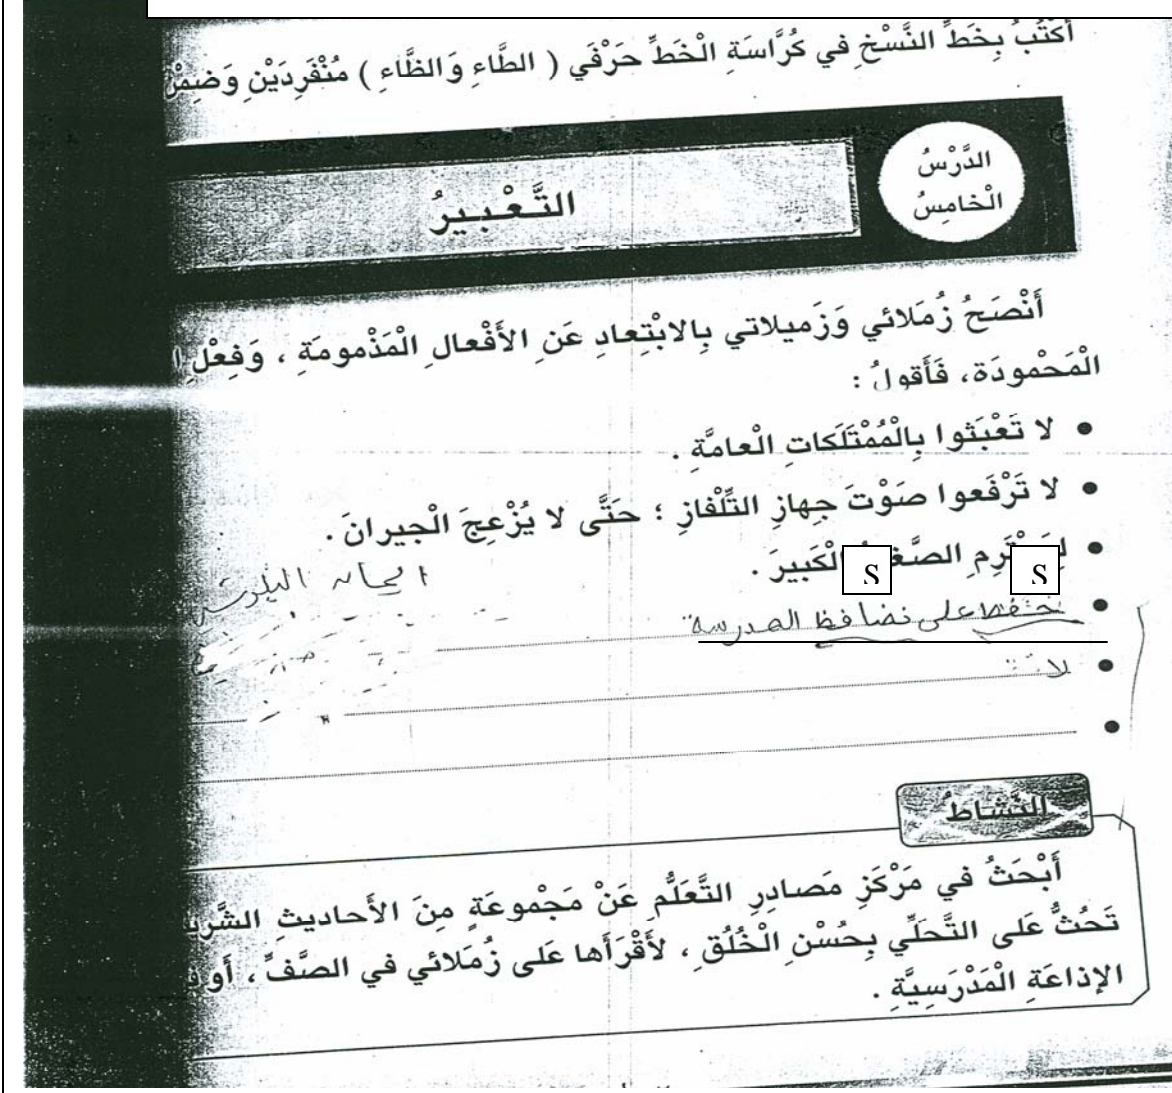 أَكْتُبُ بِخَطِّ النَّسْخِ في كُرَّاسَةِ الْخَطِّ حَرْفَي ( الطَّاءِ وَالظَّاءِ ) مُنْفَرِدَيْنِ وَضِمْنَ
الدَّرْسُ
الْخامِسُ
التَّعْبيرُ
أَنْصَحُ زُمَلائي وَزَميلاتي بِالابْتِعادِ عَنِ الأَفْعالِ الْمَذْمومَةِ ، وَفِعْلِ
الْمَحْمودَة، فَأَقولُ :
• لا تَعْبَثوا بِالْمُمْتَلَكاتِ الْعامَّةِ .
• لا تَرْفَعوا صَوْتَ جِهازِ التِّلْفازِ ؛ حَتَّى لا يُزْعِجَ الْجيرانَ .
• S الْكَبيرَ . S
• على نضافظ المدرسة
النَّشاطُ
أَبْحَثُ في مَرْكَزِ مَصادِرِ التَّعَلُّمِ عَنْ مَجْموعَةٍ مِنَ الأَحاديثِ
تَحُثُّ عَلى التَّحَلِّي بِحُسْنِ الْخُلُقِ ، لأَقْرَأَها عَلى زُمَلائي في الصَّفِّ ، أَو
الإذاعَةِ الْمَدْرَسِيَّةِ .